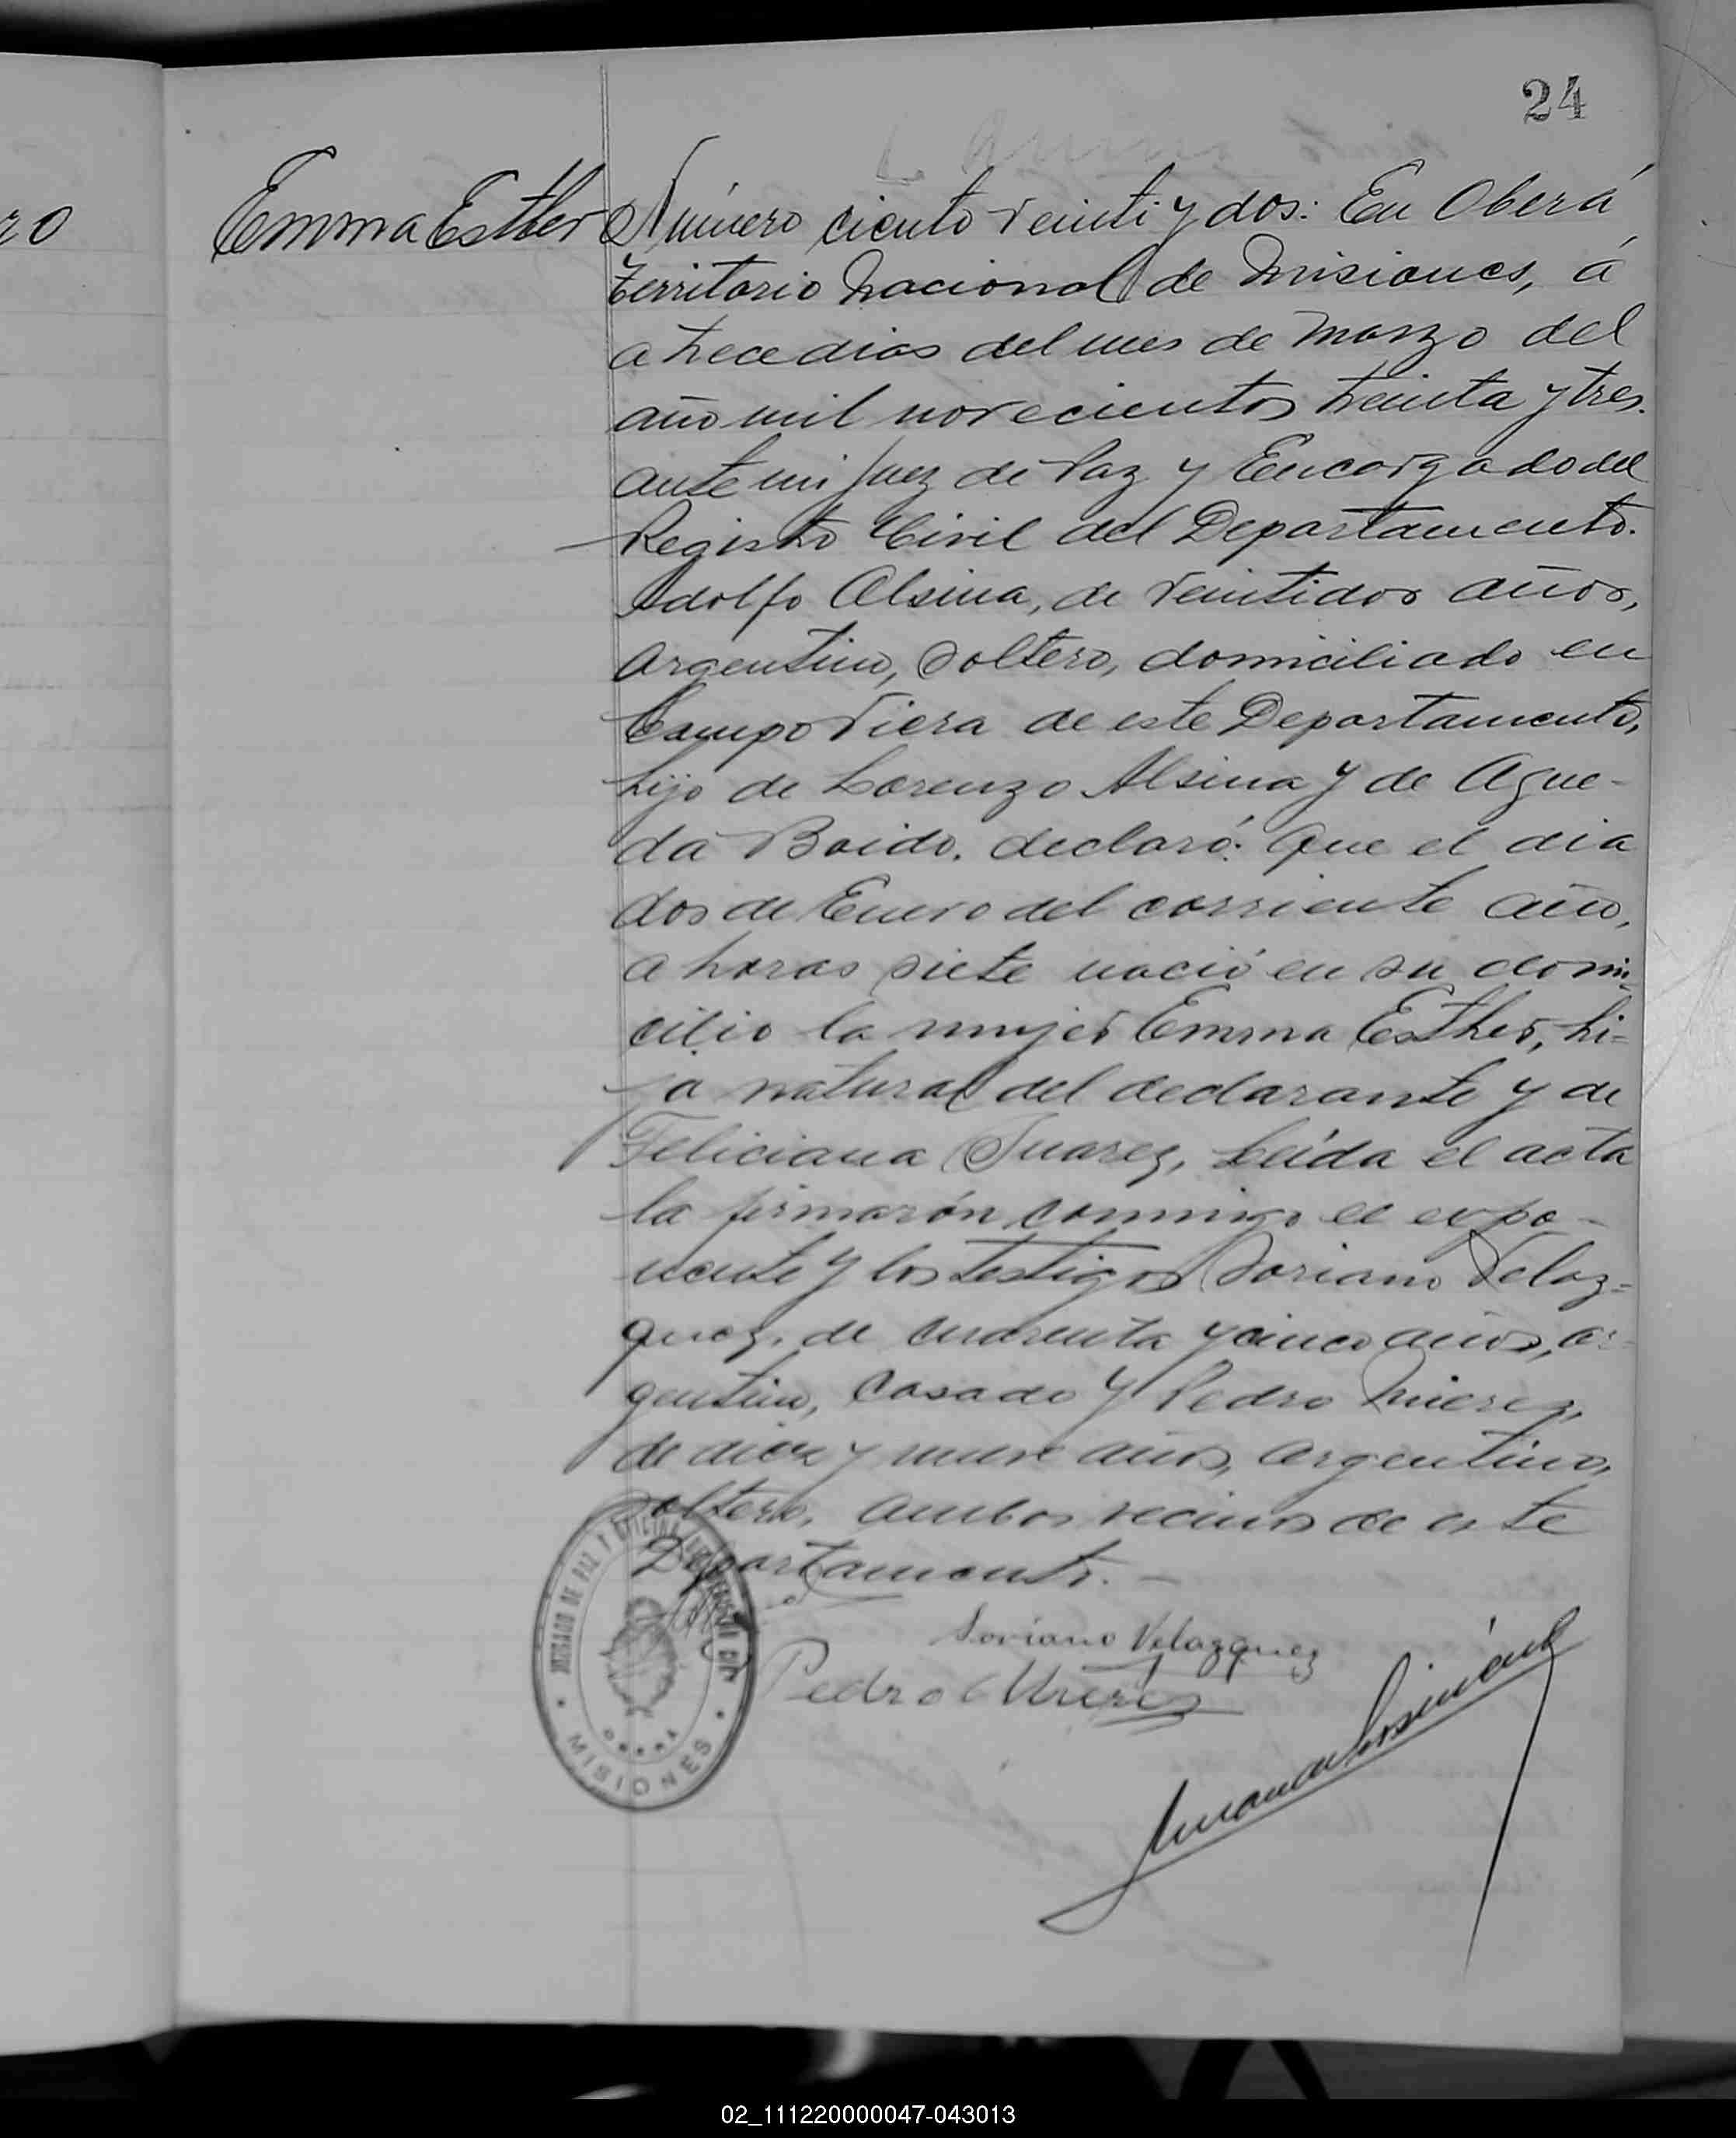 24
ro
Emma Esther
Número ciento veinti y dos: En Oberá
Territorio Nacional de Misiones, á
a trece dias del mes de Marzo del
año mil novecientos treinta y tres.
ante mi Juez de Paz y Encargado del
Registro Civil del Departamento.
Adolfo Alsina, de veintidos años,
argentino, soltero, domiciliado en
Campo Viera de este Departamento,
hijo de Lorenzo Alsina y de Ague-
da Boido. declaró: Que el dia
dos de Enero del corriente año,
a horas siete nació en su domi-
cilio la mujer Emma Esther, hi-
ja natural del declarante y de
Feliciana Suarez, Leída el acta
la firmarón conmigo el expo-
nente y los testigos Soriano Velaz-
quez, de cuarenta y cinco años, ar-
gentino, casado y Pedro Mierez,
de diez y nueve años, argentino,
soltero, ambos vecinos de este
Departamento.-
Soriano Velazquez
Pedro Mierez
JUZGADO DE PAZ Y OFICINA DEL REGISTRO CIVIL
OBERA
MISIONES
02_111220000047-043013